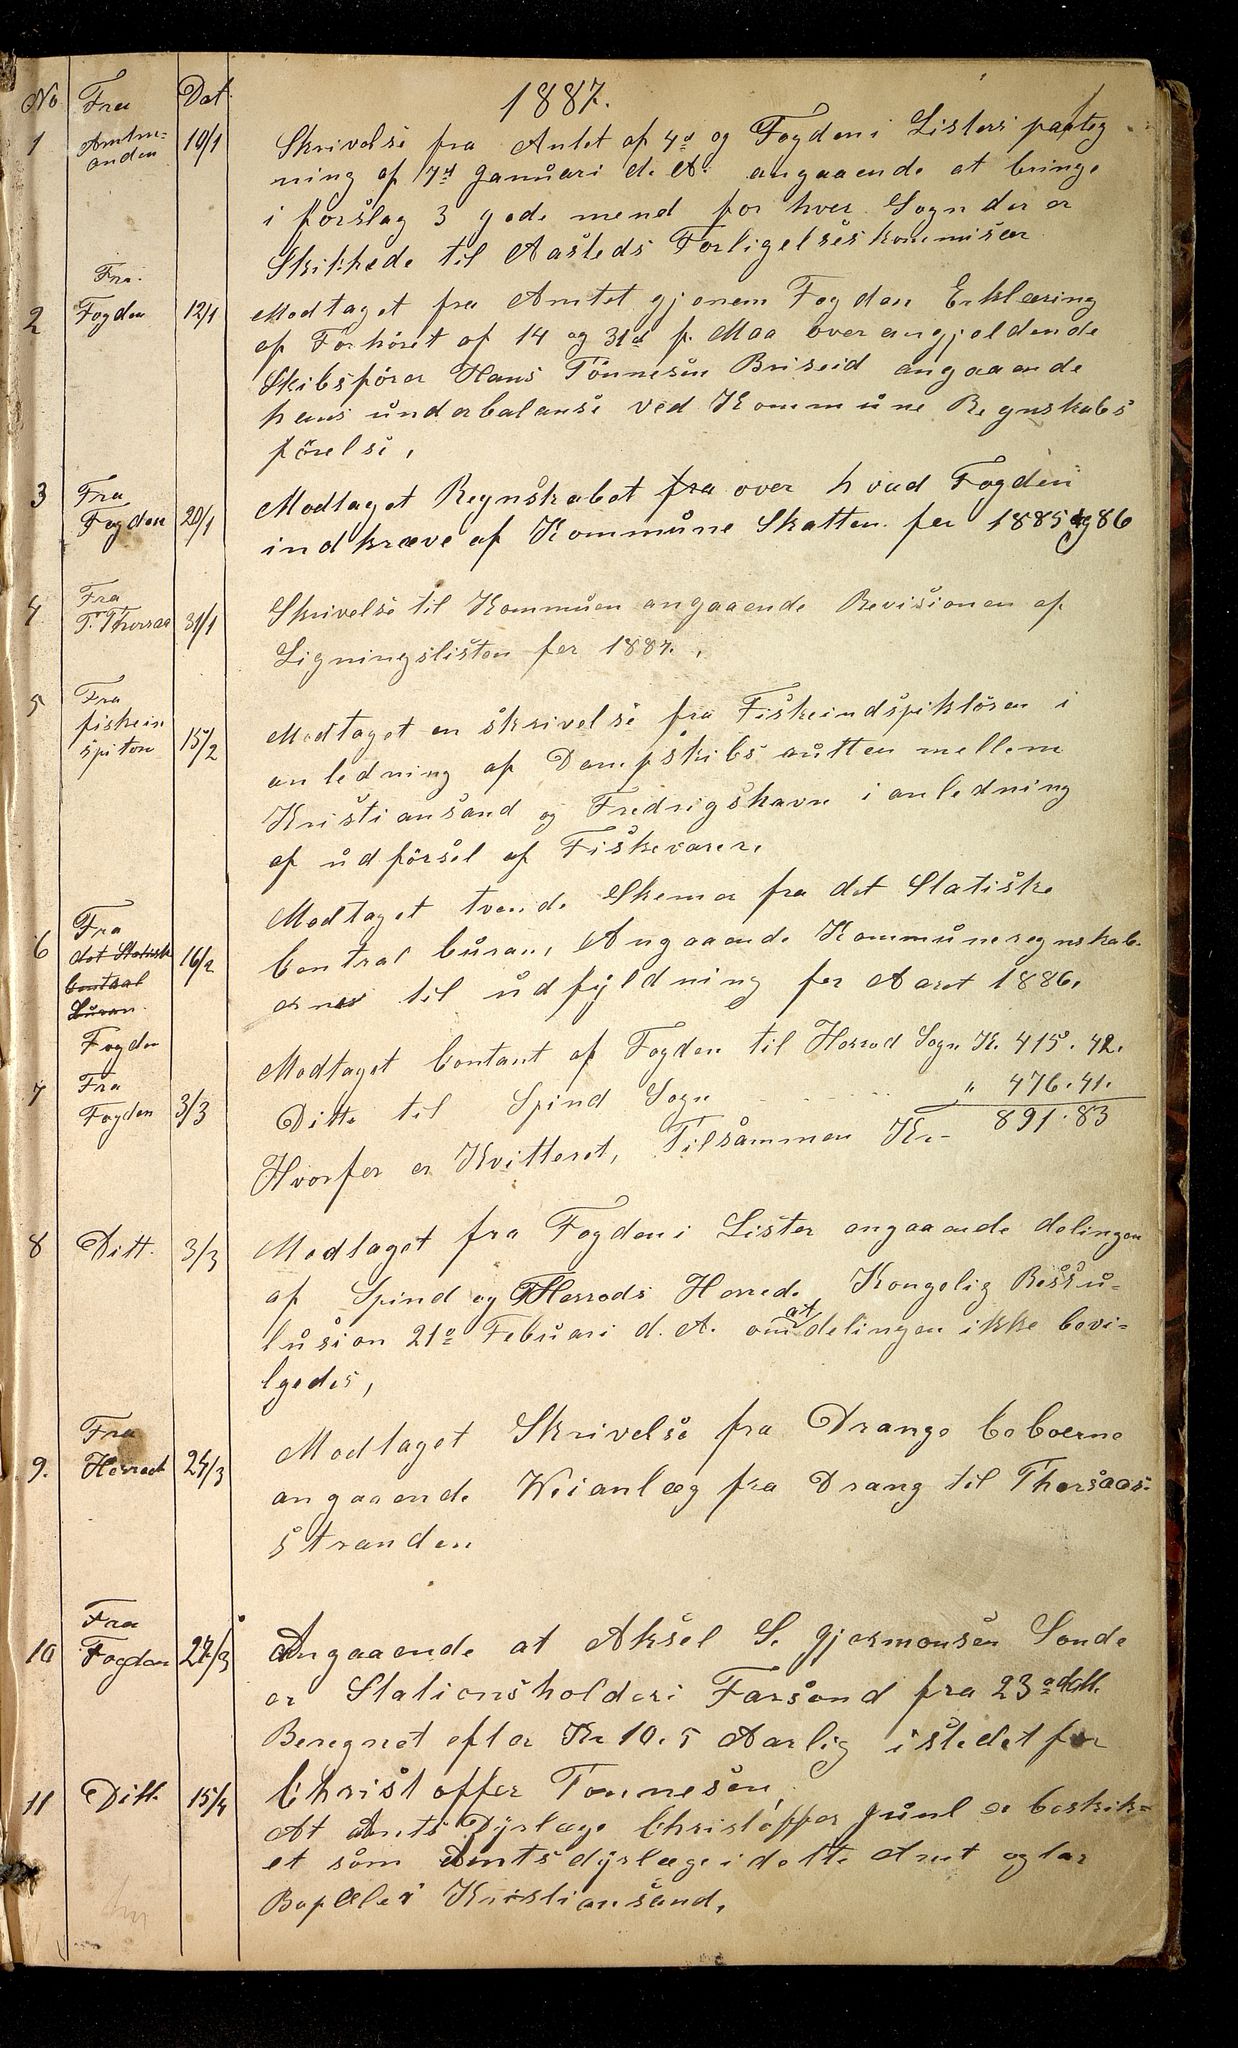 No Fra Dat.
1887.
1 Amtm= 10/1 Skrivelse fra Amtet af 4d og Fogden i Listers paateg
anden ning af 7d Januari d. A. angaaende at bringe
i forslag 3 gode mend for hver Sogn der er
Skikkede til Aasteds Forligelseskommisær
Fra.
2 Fogden 12/1 Modtaget fra Amtet gjenem Fogden Erklæring
af Forhöret af 14 og 31d f. Maa over angjeldende
Skibsförer Hans Tönnesen Briseid angaaende
hans underbalanse ved Kommune Regnskabs
förelse,
3 Fra Modtaget Regnskabet fra over hvad Fogden
Fogden 20/1 indkræve af Kommune Skatten for 1885 og 86
4 Fra Skrivelse til Kommuen angaaende Revisionen af
T. Thorsaa 31/1 Ligningslisten for 1887.
5 Fra Modtaget en skrivelse fra Fiskeindspiktören i
fiskein 15/2 anledning af Dampskibs autten mellem
spiton Kristiansand og Fredrigshavn i anledning
af udförsel af Fiskevarer.
Modtaget tvende Skemer fra det Statiske
6 Fra
det Statisk 16/2 Central buran, Angaaende Kommuneregnskab.
Central erner til udfyldning for Aaret 1886.
Buran.
Fogden
Modtaget Contant af Fogden til Herred Sogn K. 415.42.
7 Fra Ditto til Spind Sogn " 476.41.
Fogden 3/3 Hvorfor er Kvitteret, Tilsammen Kr- 891.83
8 Ditt. 3/3 Modtaget fra Fogden i Lister angaaende delingen
af Spind og Herreds Herred. Kongelig Ressu-
lusion 21d Februari d. A. om at delingen ikke bevi=
lgedes,
Fra
9. Herred 24/3 Modtaget Skrivelse fra Drange beboerne
angaaende Veianlæg fra Drang til Thorsaas-
stranden
Fra
10 Fogden 24/3 Angaaende at Aksel S. Gjermonsen Sonde
er Stationsholder i Farsond fra 23d ddt.
Beregnet efter Kr 10.5 Aarlig istedet for
Christoffer Tonnesen,
11 Ditt. 15/4 At Amts Dyrlæge Christoffer Juul er beskik=
et som Amtsdyrlæge i dette Amt og tar
Bopæle i Kristiansand,